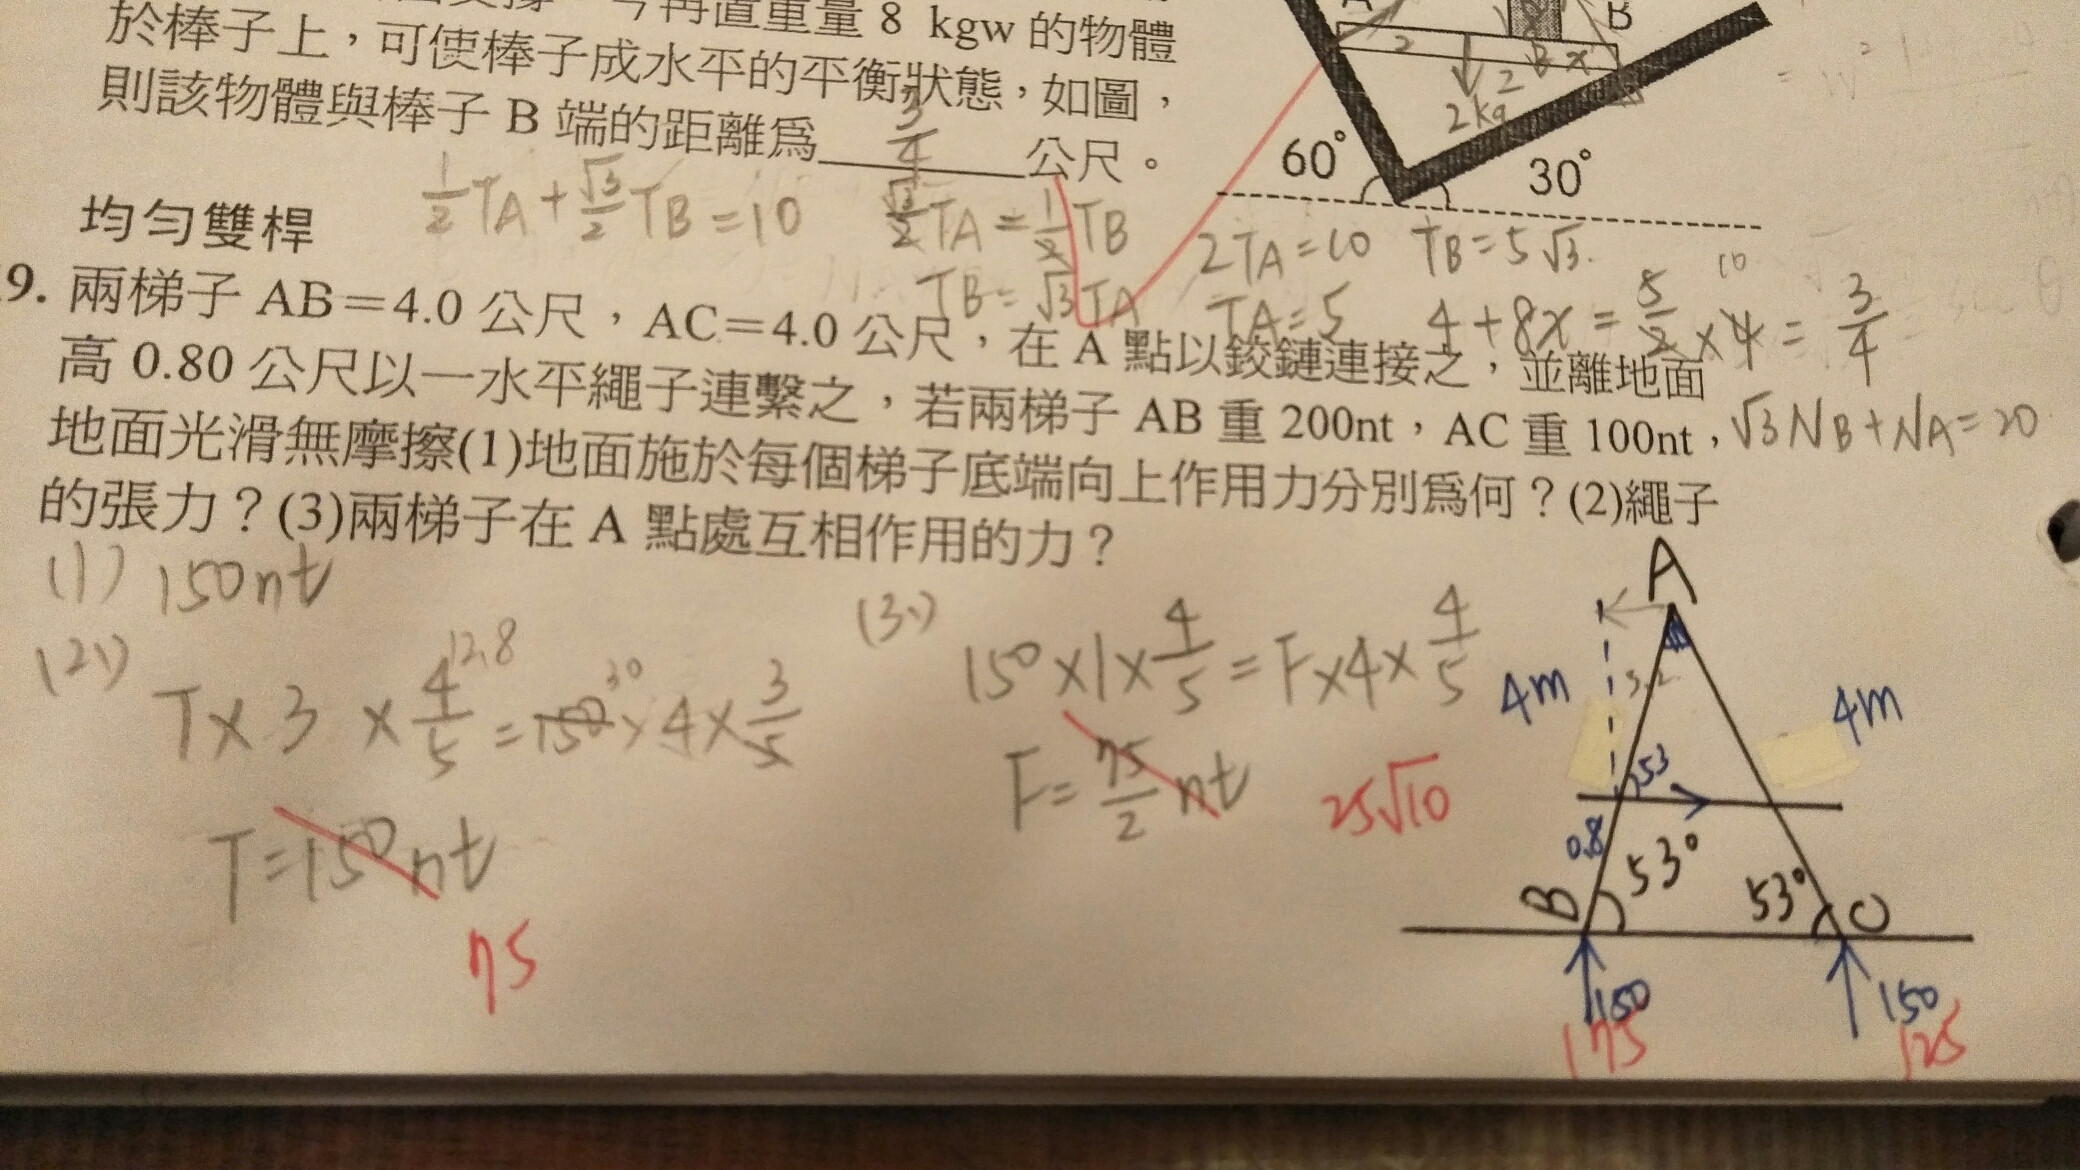 今再置重量 8 kgw 的物體
於棒子上，可使棒子成水平的平衡狀態，如圖，
則該物體與棒子 B 端的距離為 3/4 公尺。
A
B
2
2
x
2kg
60°
30°
均勻雙桿
1/2 TA + √3/2 TB = 10
√3/2 TA = 1/2 TB
TB = √3 TA
2TA = 10
TB = 5√3
TA = 5
4 + 8x = 5/2 × 4 = 3/4
10
√3 NB + NA = 20
9. 兩梯子 AB＝4.0 公尺，AC＝4.0 公尺，在 A 點以鉸鏈連接之，並離地面
高 0.80 公尺以一水平繩子連繫之，若兩梯子 AB 重 200nt，AC 重 100nt，
地面光滑無摩擦(1)地面施於每個梯子底端向上作用力分別為何？(2)繩子
的張力？(3)兩梯子在 A 點處互相作用的力？
(1) 150nt
(2) T × 3 × 4/5 = 150 × 4 × 3/5
12.8
30
T = 150nt
75
(3) 150 × 1 × 4/5 = F × 4 × 4/5
F = 75/2 nt
25√10
A
4m
3.2
4m
53
0.8
53°
53°
B
C
150
175
150
125